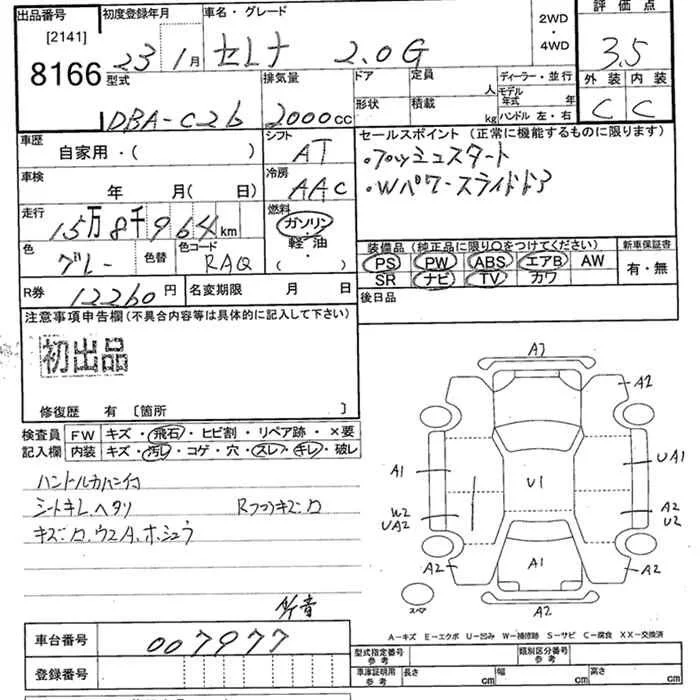 出品番号 初度登録年月 車名・グレード 2WD・4WD 評価点
[2141]
8166 23 1月 セレナ 2.0G 3.5
型式 排気量 ドア 定員 人 ディーラー・並行 外装 内装
DBA-C26 2000cc 形状 積載 kg モデル年式 年 ハンドル 左・右 C C
車歴 自家用・( ) シフト AT
セールスポイント (正常に機能するものに限ります)
・プッシュスタート
・Wパワースライドドア
車検 年 月( 日) 冷房 AAC
走行 15万8千964km 燃料 ガソリン・軽油・( )
色 グレー 色替 色コード RAQ
装備品 (純正品に限り○をつけてください) 新車保証書
PS PW ABS エアB AW 有・無
SR ナビ TV カワ
R券 12260円 名変期限 月 日 後日品
注意事項申告欄(不具合内容等は具体的に記入して下さい)
初出品
修復歴 有 〔箇所 〕
検査員記入欄 FW キズ・飛石・ヒビ割・リペア跡・×要
内装 キズ・汚レ・コゲ・穴・スレ・キレ・破レ
シートキレ、ヘタリ
A3
A2
A2
A1
UA1
U1
W2
UA2
A2
U2
A2
A1
A2
A2
スペア
A-キズ E-エクボ U-凹み W-補修跡 S-サビ C-腐食 XX-交換済
車台番号 007977
登録番号
型式指定番号 参考 類別区分番号 参考
車庫証明用 参考 長さ cm 幅 cm 高さ cm